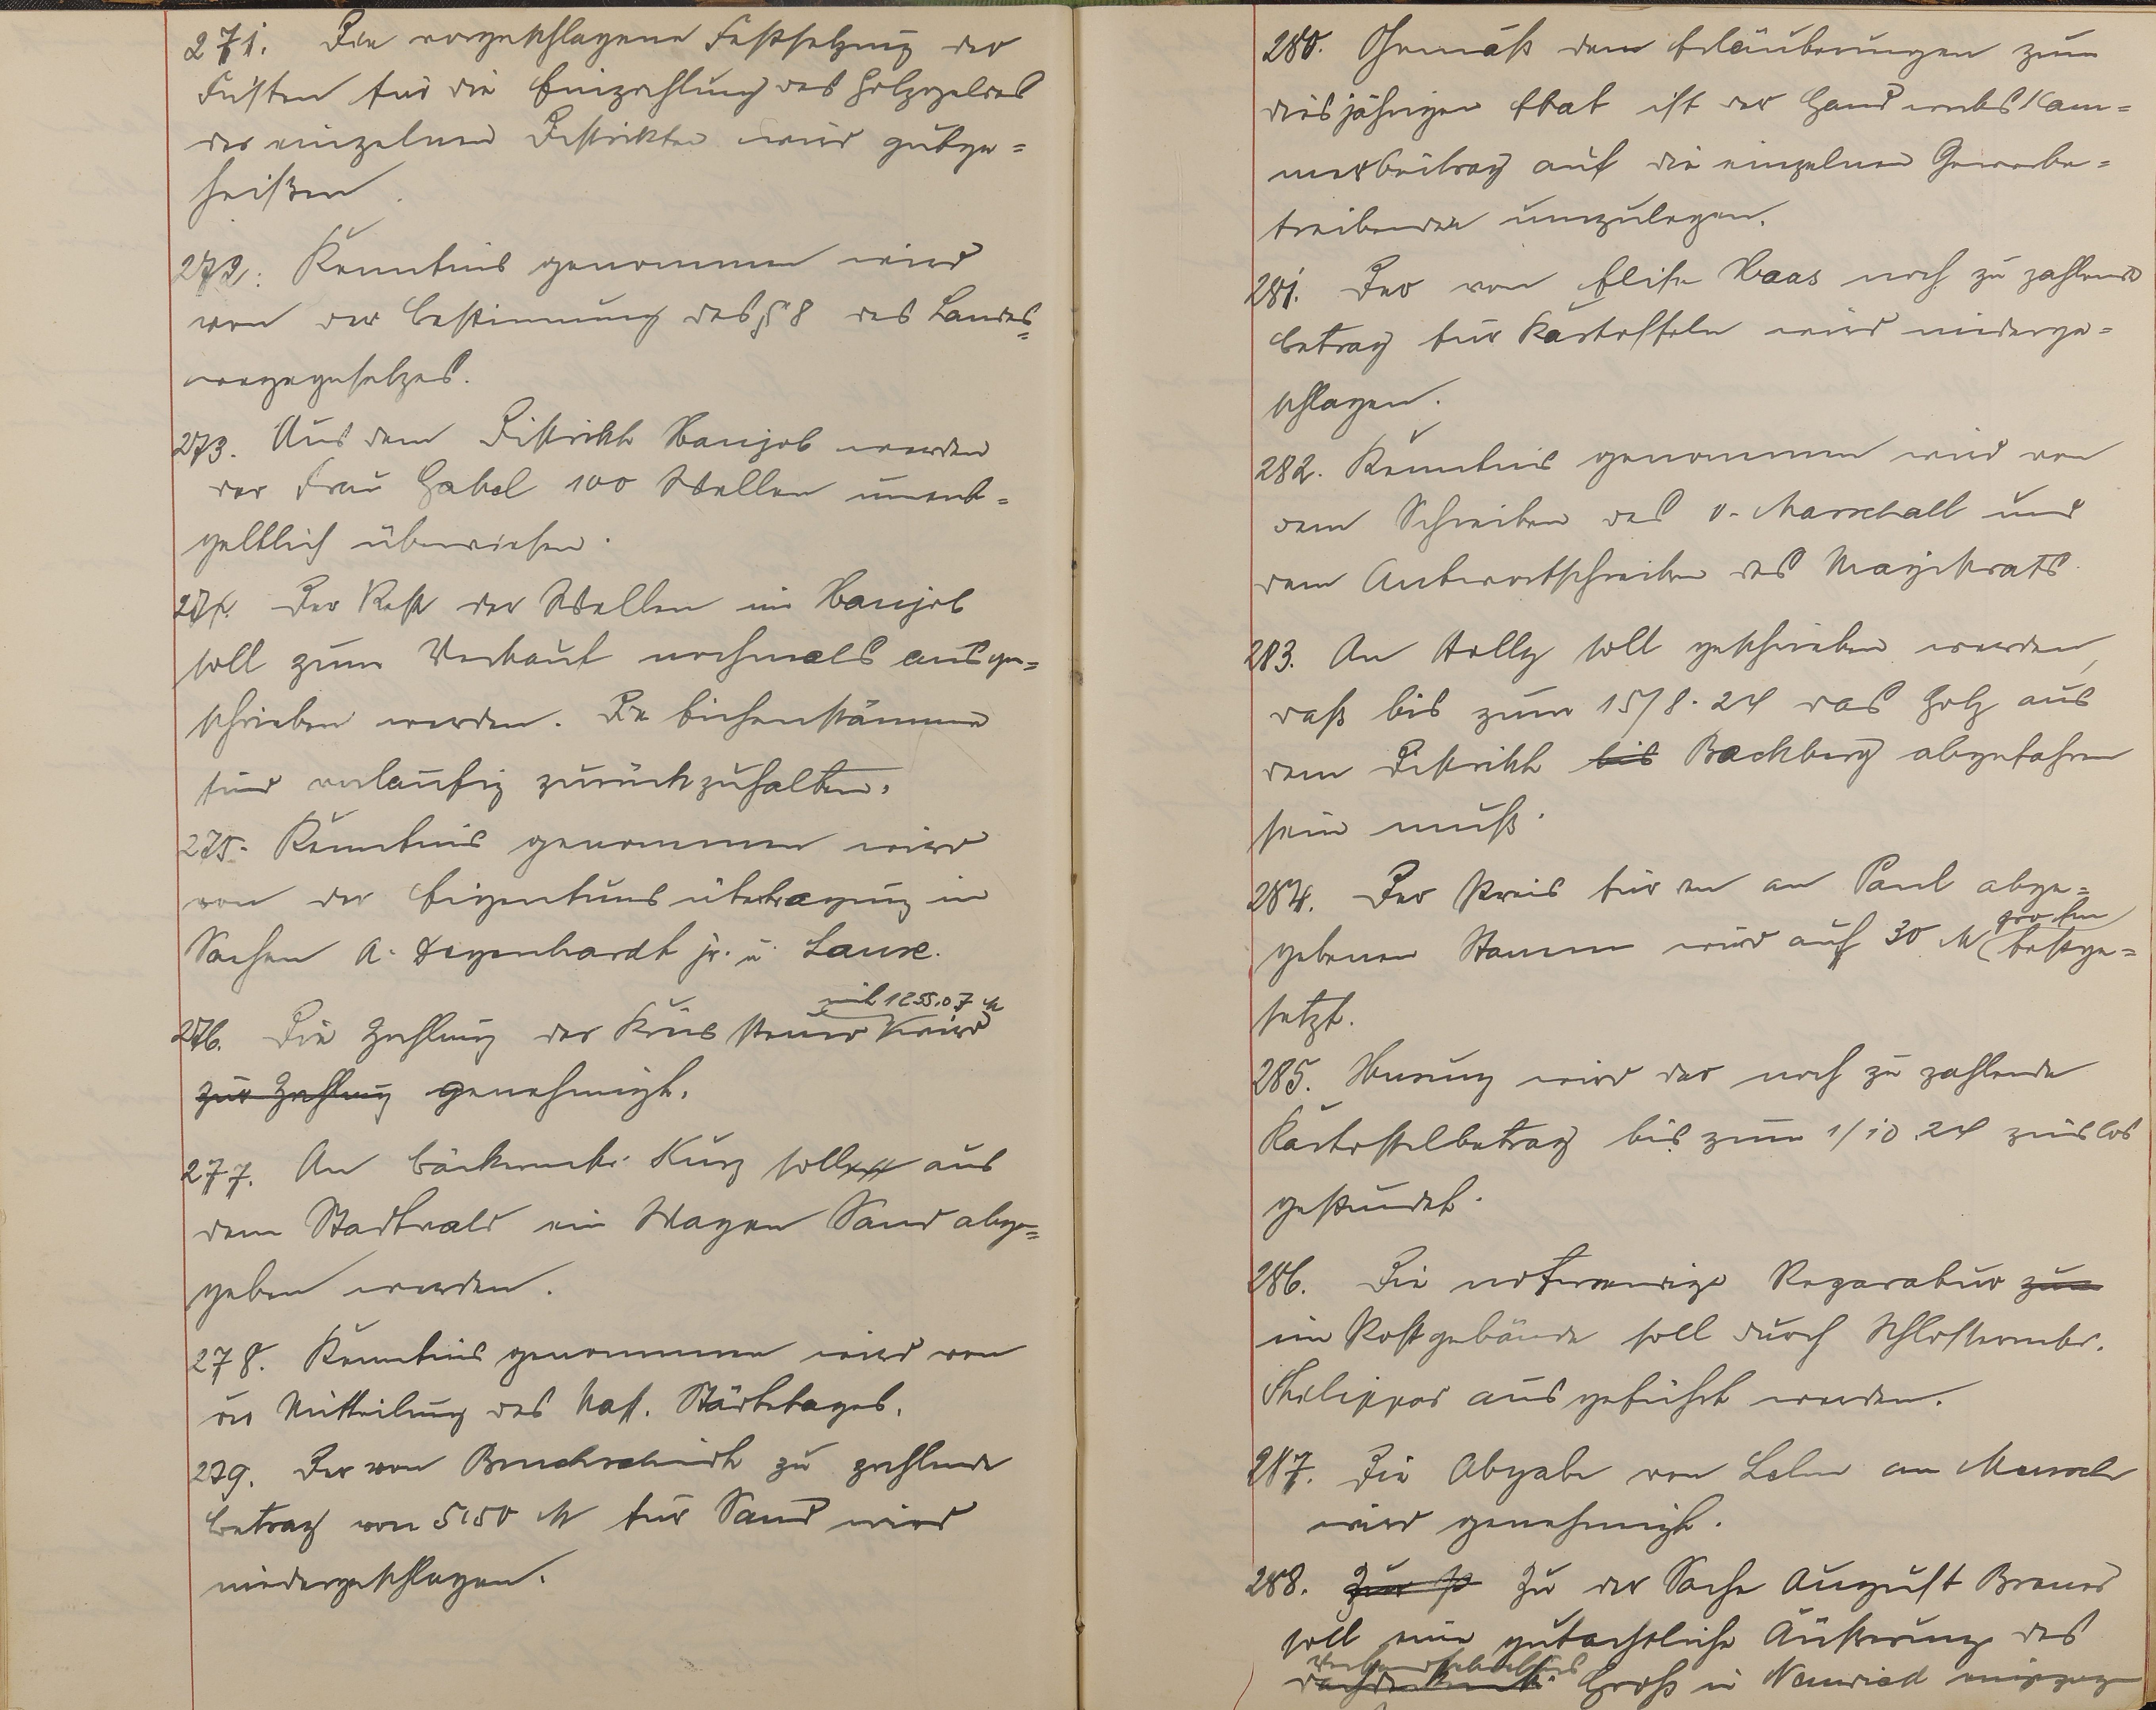 271. Die vorgeschlagene Festsetzung der
Fristen für die Einzahlung des Holzgeldes
der einzelnen Distrikte wird gutge=
heißen.
272. Kenntnis genommen wird
von der Bestimmung des § 8 des Landes=
wegegesetzes.
273. Aus dem Distrikt Hanjob werden
der Frau Gabel 100 Wellen unent=
geltlich überwiesen.
274. Der Rest der Wellen im Hanjob
soll zum Verkauf nochmals ausge=
schrieben werden. Die Eichenstämme
sind vorläufig zurückzuhalten.
275. Kenntnis genommen wird
von der Eigentumsübertragung in
Sachen A. Degenhardt jr. u. Lause.
276. Die Zahlung der Kreissteuer mit 1255.07 M wird
zur Zahlung genehmigt.
277. An Bäckermstr. Kurz soll aus
dem Stadtwald ein Wagen Sand abge=
geben werden.
278. Kenntnis genommen wird von
der Mitteilung des Nass. Städtetages.
279. Der von Bruchschmidt zu zahlende
Betrag von 5,50 M für Sand wird
niedergeschlagen.
280. Gemäß dem Erläuterungen zum
diesjährigen Etat ist der Handwerkskam=
merbeitrag auf die einzelnen Gewerbe=
treibenden umzulegen.
281. Der von Elise Haas noch zu zahlende
Betrag für Kartoffeln wird niederge=
schlagen.
282. Kenntnis genommen wird von
dem Schreiben des v. Marschall und
dem Antwortschreiben des Magistrats.
283. An Holly soll geschrieben werden,
daß bis zum 15/8. 24 das Holz aus
dem Distrikt bis Backberg abgefahren
sein muß.
284. Der Preis für den an Paul abge=
gebenen Stamm wird auf 30 M pro fm festge=
setzt.
285. wird der noch zu zahlende
Kartoffelbetrag bis zum 1/10 24 zinslos
gestundet.
286. Die notwendige Reparatur zum
im Postgebäude soll durch Schlossermstr.
Philippar ausgeführt werden.
287. Die Abgabe von Lehm an
wird genehmigt.
288. Zur Zu der Sache August Braun
soll eine gutachtliche Äußerung des
Groß in Neuwied